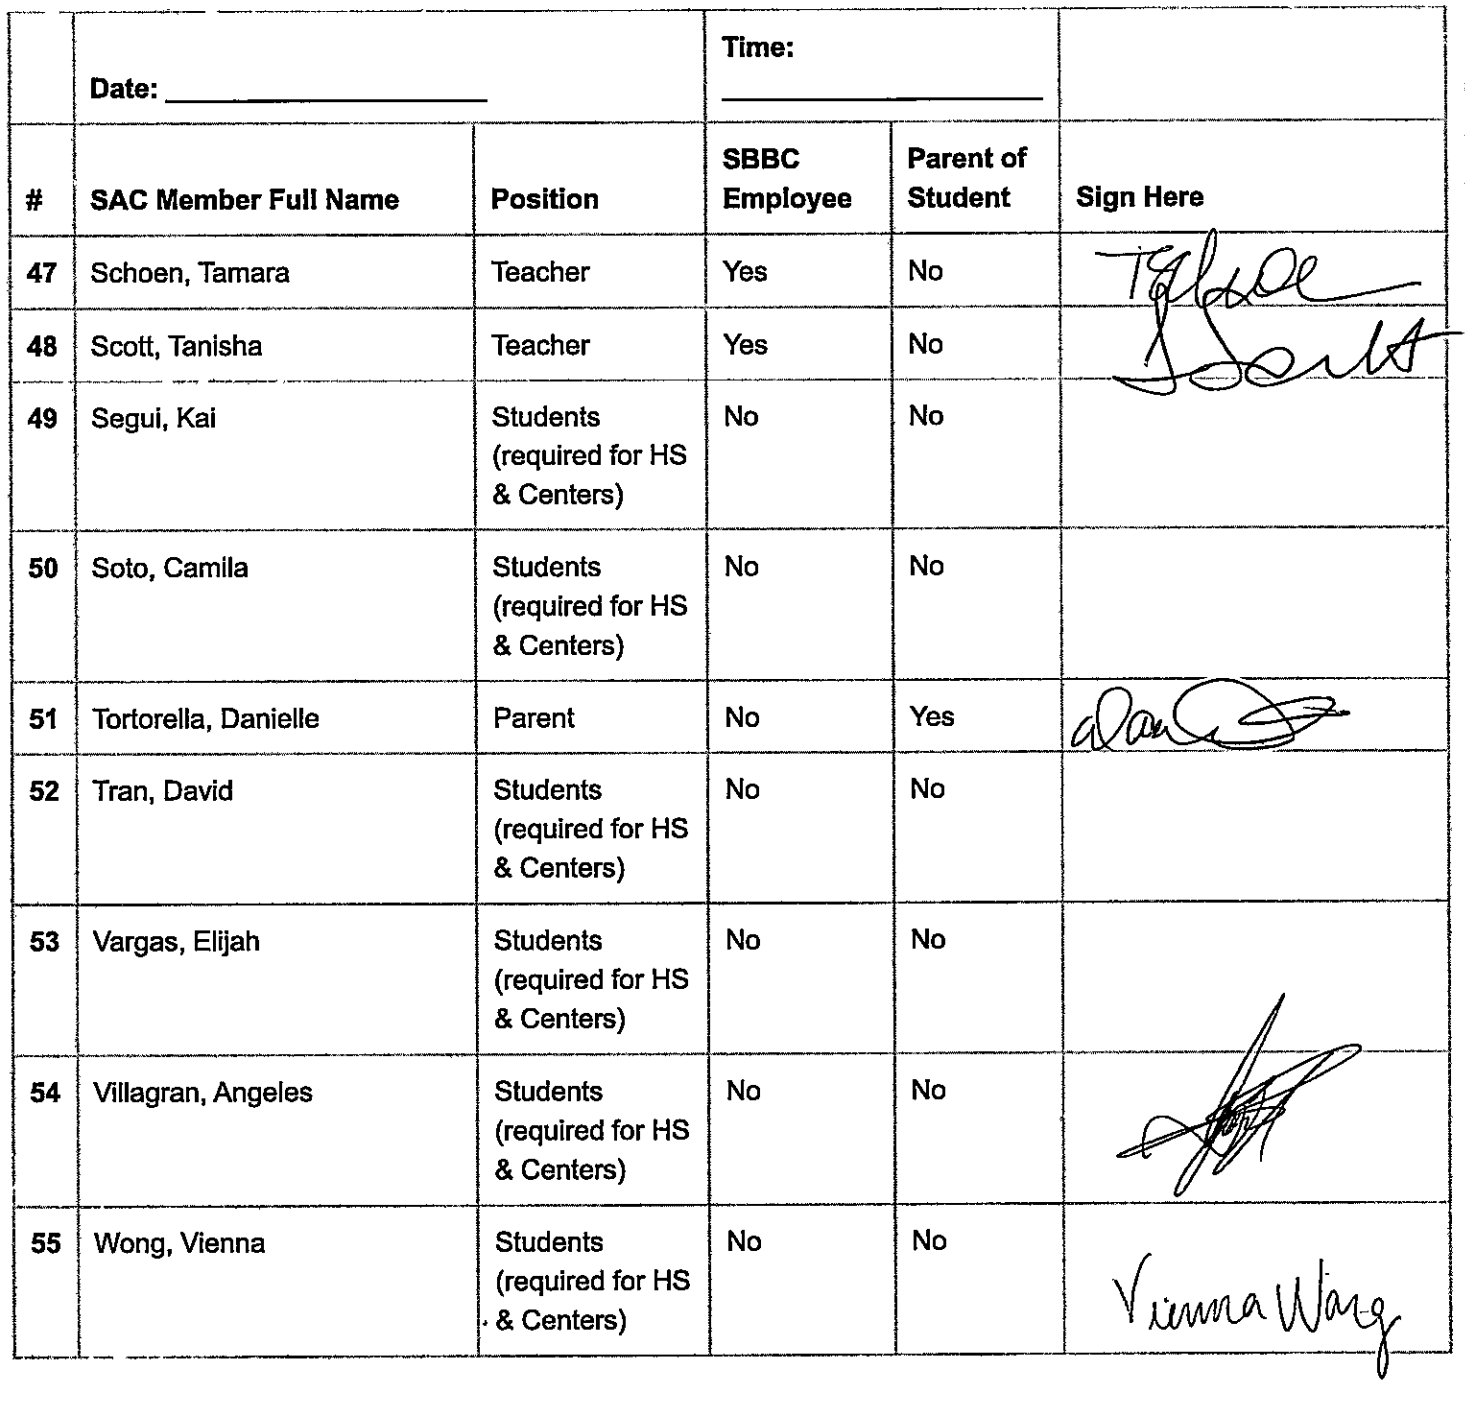 Time:
Date:
SBBC Parent of
# SAC Member Full Name Position Employee Student Sign Here
47 Schoen, Tamara Teacher Yes No
48 Scott, Tanisha Teacher Yes No
49 Segui, Kai Students No No
(required for HS
& Centers)
50 Soto, Camila Students No No
(required for HS
& Centers)
51 Tortorella, Danielle Parent No Yes
52 Tran, David Students No No
(required for HS
& Centers)
53 Vargas, Elijah Students No No
(required for HS
& Centers)
54 Villagran, Angeles Students No No
(required for HS
& Centers)
55 Wong, Vienna Students No No
(required for HS
& Centers) Vienna Wong